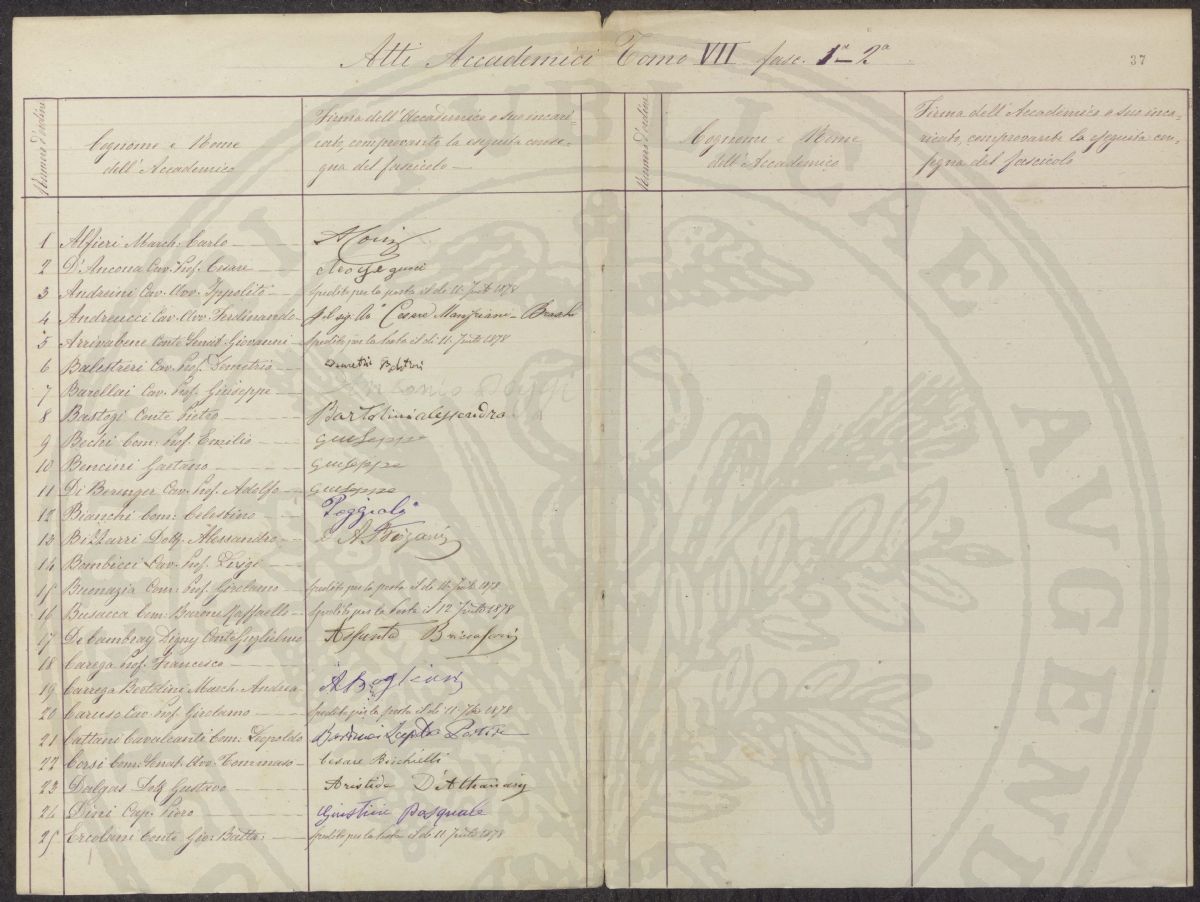 Atti Accademici Tomo VII fasc. 1ª-2ª
37
Numero d'ordine
Cognome e Nome
dell'Accademico
Firma dell'Accademico o suo incari-
cato, comprovante la eseguita conse-
gna del fascicolo
Numero d'ordine
Cognome e Nome
dell'Accademico
Firma dell'Accademico o suo inca-
ricato, comprovante la eseguita con-
segna del fascicolo
1 Alfieri March. Carlo
2 D'Ancona Cav. Prof. Cesare
3 Andreini Cav. Avv. Ippolito Spedito per la posta il dì 11 1878
4 Andreucci Cav. Avv. Ferdinando Cesare
5 Arrivabene Conte Senat. Giovanni Spedito per la posta il dì 11 1878
6 Balestreri Cav. Prof. Demetrio
7 Barellai Cav. Prof. Giuseppe Antonio Poggi
8 Bastogi Conte Pietro Bartolini alessandro
9 Bechi Com. Prof. Emilio Giuseppe
10 Bencini Gaetano Giuseppe
11 Di Berenger Cav. Prof. Adolfo Giuseppe
12 Bianchi Com: Celestino Poggiali
13 Bizzarri Dott. Alessandro
14 Bombicci Cav. Prof. Luigi
15 Buonazia Cav. Prof. Girolamo Spedito per la posta il dì 11 1878
16 Busacca Com. Barone Raffaello Spedito per la posta il 12 1878
17 De Cambray Digny Conte Guglielmo Assunta
18 Carega Prof. Francesco
19 Carrega Bertolini March. Andrea
20 Caruso Cav. Prof. Girolamo Spedito per la posta il dì 11 1878
21 Cattani Cavalcanti Com: Leopoldo
22 Corsi Com. Senat. Avv. Tommaso Cesare
23 Dalgas Dott. Gustavo Aristide
24 Dini Cap. Piero Giustini Pasquale
25 Ercolani Conte Gior Batta: Spedito per la posta il dì 11 1878
PUBLICAE
AVGENDAE